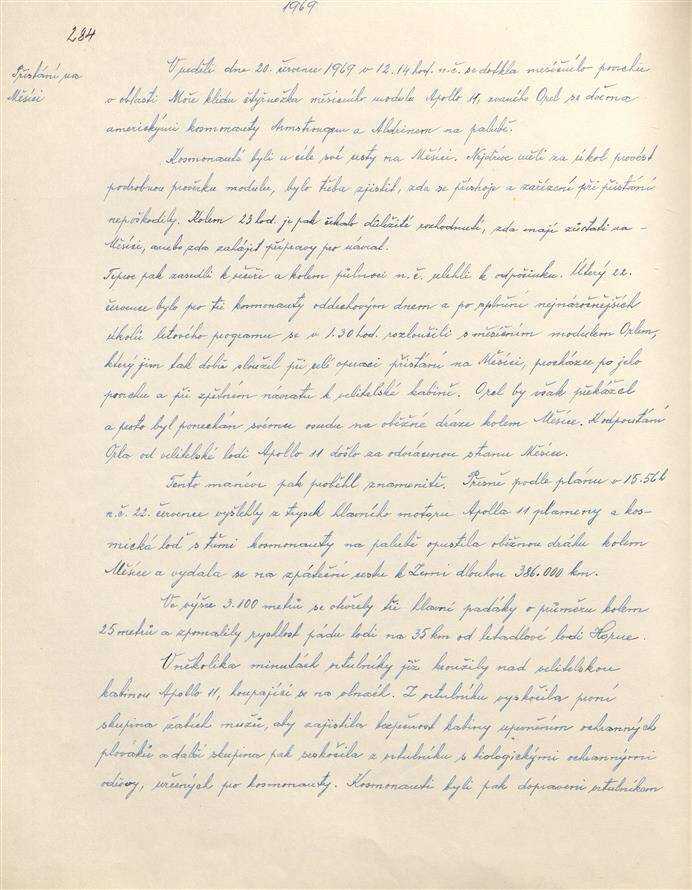 1969
284
Přistání na
Měsíci
V neděli dne 20. července 1969 v 12.14 hod. n.č. se dotkla měsíčního povrchu
v oblasti Moře klidu čtyřnožka měsíčního modulu Apollo 11, zvaného Orel se dvěma
americkými kosmonauty Armstrongem a Aldrinem na palubě.
Kosmonauté byli u cíle své cesty na Měsíci. Nejdříve měli za úkol provést
podrobnou prověrku modulu, bylo třeba zjistit, zda se přístroje a zařízení při přistání
nepoškodily. Kolem 23 hod. je pak čekalo důležité rozhodnutí, zda mají zůstati na
Měsíci, anebo zda zahájit přípravy pro návrat.
Teprve pak zasedli k večeři a kolem půlnoci n.č. ulehli k odpočinku. Úterý 22.
července bylo pro tři kosmonauty oddechovým dnem a po splnění nejnáročnějších
úkolů letového programu se v 1.30 hod. rozloučili s měsíčním modulem Orlem,
který jim tak dobře sloužil při celé operaci přistání na Měsíci, procházce po jeho
povrchu a při zpětném návratu k velitelské kabině. Orel by však překážel
a proto byl ponechán svému osudu na oběžné dráze kolem Měsíce. K odpoutání
Orla od velitelské lodi Apollo 11 došlo za odvrácenou stranu Měsíce.
Tento manévr pak proběhl znamenitě. Přesně podle plánu v 15.56 h
n.č. 22. července vyšlehly z trysek hlavního motoru Apolla 11 plameny a kos-
mická loď s třemi kosmonauty na palubě opustila oběžnou dráhu kolem
Měsíce a vydala se na zpáteční cestu k Zemi dlouhou 386.000 km.
Ve výšce 3.100 metrů se otevřely tři hlavní padáky o průměru kolem
25 metrů a zpomalily rychlost pádu lodi na 35 km od letadlové lodi Horne.
V několika minutách vrtulníky již kroužily nad velitelskou
kabinou Apollo 11, houpající se na vlnách. Z vrtulníku vyskočila první
skupina žabích mužů, aby zajistila bezpečnost kabiny upevněním ochranných
plováků a další skupina pak seskočila z vrtulníku s biologickými ochrannými
oděvy, určených pro kosmonauty. Kosmonauti byli pak dopraveni vrtulníkem